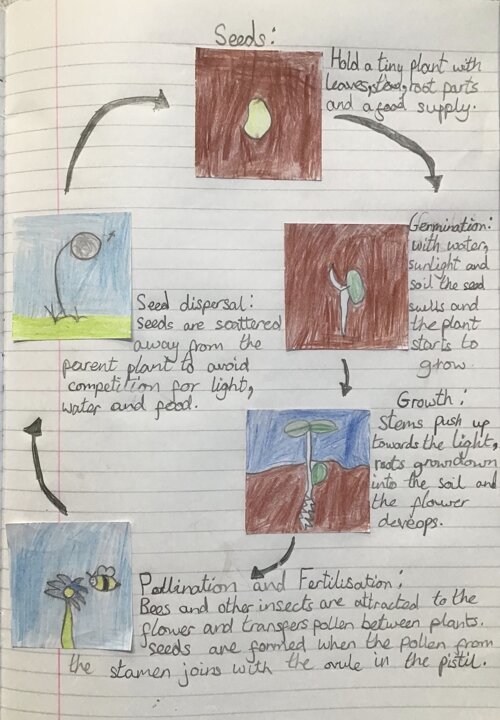 Seeds:
Hold a tiny plant with
leaves, stem, root parts
and a food supply.
Germination:
with water,
sunlight and
soil the seed
swells and
the plant
starts to
grow.
Growth:
Stems push up
towards the light,
roots growdown
into the soil and
the flower
deveops.
Pollination and Fertilisation:
Bees and other insects are attracted to the
flower and transfers pollen between plants.
seeds are formed when the pollen from
the stamen joins with the ovule in the pistil.
Seed dispersal:
Seeds are scattered
away from the
parent plant to avoid
competition for light,
water and food.